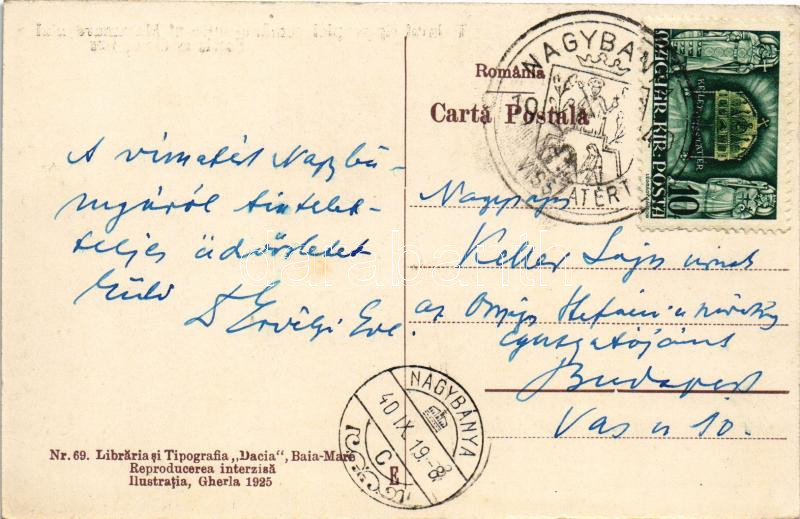 România
Cartă Postală
NAGYBÁNYA
VISSZATÉRT
MAGYAR KIR. POSTA
KELET VISSZATÉR
10
A visszatért Nagybá-
nyáról tisztelet-
teljes üdvözletet
küld
Dr Ervölgyi Eve.
Nagyságos
Keller Lajos úrnak
az Országos Stefánia szövetség
igazgatójának
Budapest
Vas u 10.
NAGYBÁNYA
40 IX. 19.-8
C
E
Nr. 69. Librăria și Tipografia „Dacia", Baia-Mare
Reproducerea interzisă
Ilustrația, Gherla 1925